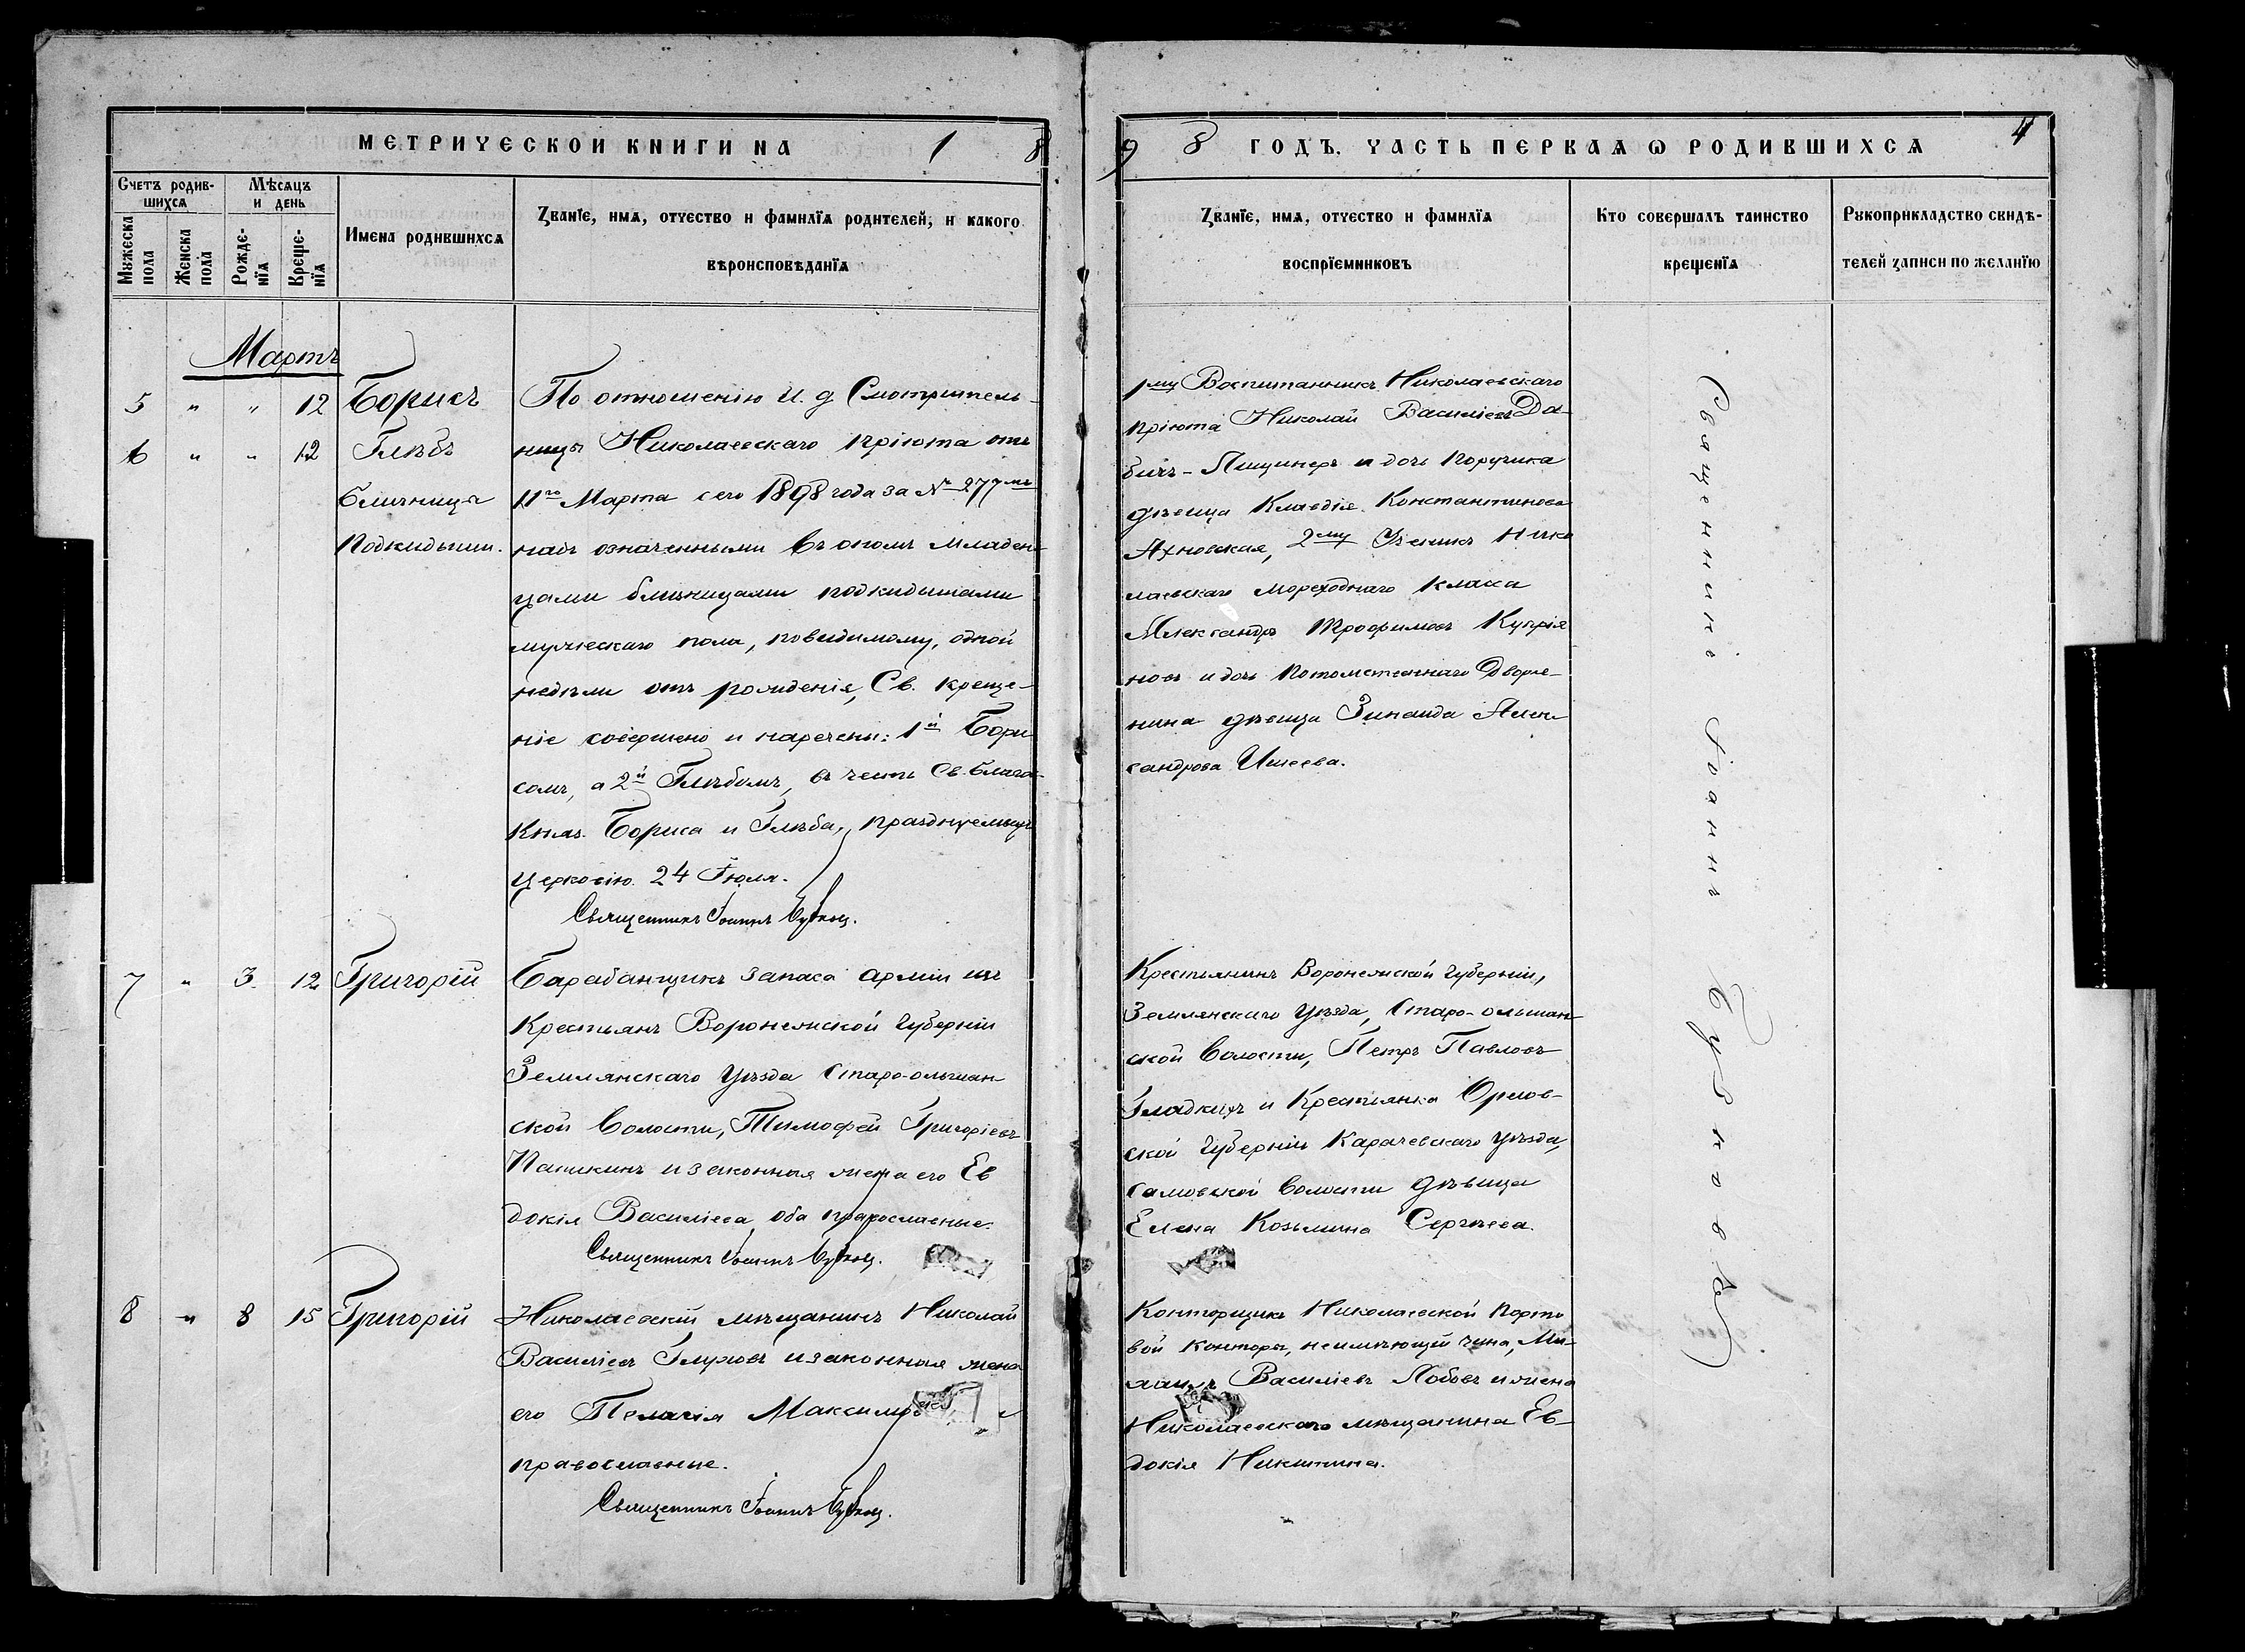 МЕТРИЧЕСКОЙ КНИГИ НА 1 8
9 8 ГОДЪ. ЧАСТЬ ПЕРВАЯ Ѡ РОДИВШИХСЯ
4
Счетъ родив-
шихся
Мѣсяцъ
и день
Мужеска
пола
Женска
пола
Рожде-
нїя
Креще-
нїя
Имена родившихся
Званїе, имя, отчество и фамилїя родителей, и какого
вѣроисповѣданїя
Званїе, имя, отчество и фамилїя
воспрїемниковъ
Кто совершалъ таинство
крещенїя
Рукоприкладство свидѣ-
телей записи по желанїю
Мартъ
5 " " 12 Борисъ
6 " " 12 Глѣбъ
близницы
подкидыши.
По отношенію И. д. Смотритель-
ницы Николаевскаго пріюта отъ
11го Марта сего 1898 года за № 277мъ
надъ означенными въ ономъ младен-
цами близницами подкидышами
мужескаго пола, повидимому, одной
недѣли отъ рожденія, Св. креще-
ніе совершено и наречены: 1й Бори
сомъ, а 2й Глѣбомъ, въ честь Св. благов.
Княз. Бориса и Глѣба, празднуемыхъ
церковію 24 Іюля.
Священникъ Іоаннъ
1му Воспитанникъ Николаевскаго
пріюта Николай Василіевъ Да-
бичъ- и дочь поручика
дѣвица Клавдія Константинова
2му Ученикъ Нико
лаевскаго мореходнаго класса
Александръ Трофимовъ Купрія
новъ и дочь потомственнаго Дворя-
нина дѣвица Зинаида Алек
сандрова Ишеева.
7 " 3. 12 Григорій
Барабанщикъ запаса арміи изъ
Крестьянъ Воронежской губерніи
Землянскаго уѣзда Старо-ольшан-
ской волости, Тимофей Григоріевъ
и законная жена его Ев
докія Василіева, оба православные.
Священникъ Іоаннъ
Крестьянинъ Воронежской губерніи,
Землянскаго уѣзда, Старо-ольшан-
ской волости, Петръ Павловъ
Гладкихъ и Крестьянка Орлов-
ской губерніи Карачевскаго уѣзда,
волости дѣвица
Елена Козьмина Сергѣева.
8 " 8 15 Григорій
Николаевскій мѣщанинъ Николай
Василіевъ Глуховъ и законная жена
его Пелагія
православные.
Священникъ Іоаннъ
Конторщикъ Николаевской порто
вой конторы, неимѣющій чина, Ми-
хаилъ Василіевъ Лобовъ и жена
Николаевскаго мѣщанина Ев-
докія Никитина.
Священникъ Іоаннъ